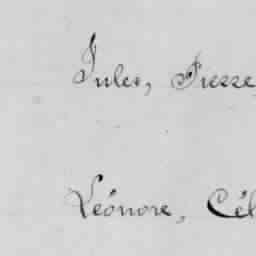 Jules, Pierre
Léonore, Cél